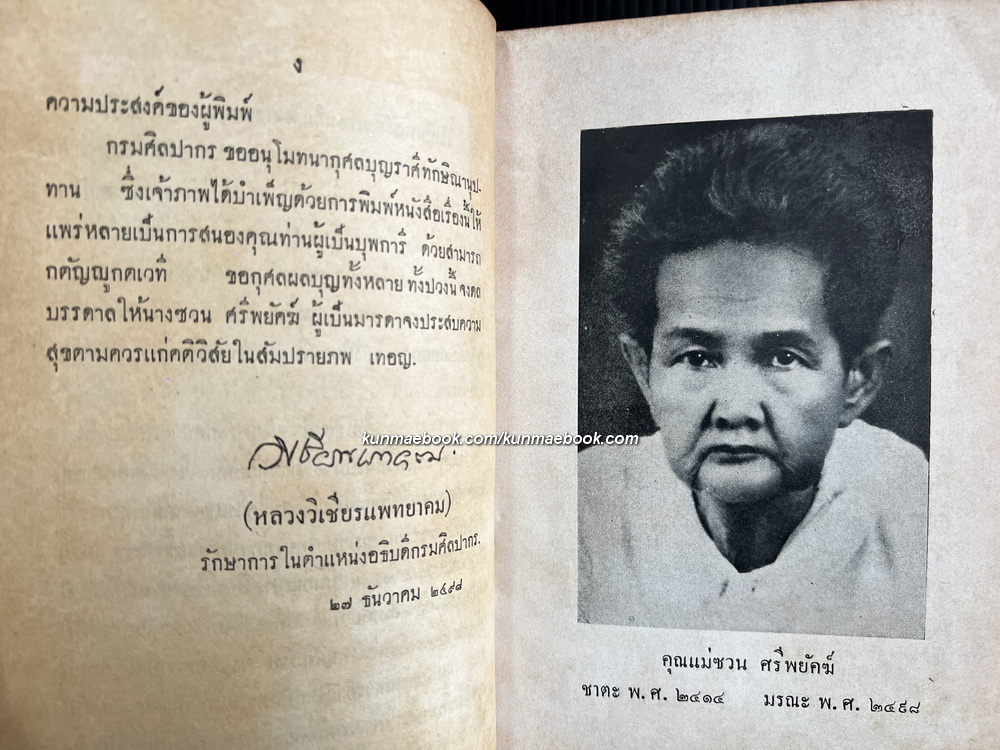 ง
ความประสงค์ของผู้พิมพ์
กรมศิลปากร ขออนุโมทนากุศลบุญราศีทักษิณานุป-
ทาน ซึ่งเจ้าภาพได้บำเพ็ญด้วยการพิมพ์หนังสือเรื่องนี้ให้
แพร่หลายเป็นการสนองคุณท่านผู้เป็นบุพการี ด้วยสามารถ
กตัญญูกตเวที ขอกุศลผลบุญทั้งหลาย ทั้งปวงนี้ จงดล
บรรดาลให้นางซวน ศรีพยัคฆ์ ผู้เป็นมารดาจงประสบความ
สุขตามควรแก่คติวิสัยในสัมปรายภพ เทอญ.
(หลวงวิเชียรแพทยาคม)
รักษาการในตำแหน่งอธิบดีกรมศิลปากร.
๒๗ ธันวาคม ๒๔๙๘
kunmaebook.com/kunmaebook.com
คุณแม่ซวน ศรีพยัคฆ์
ชาตะ พ.ศ. ๒๔๑๔ มรณะ พ.ศ. ๒๔๙๘